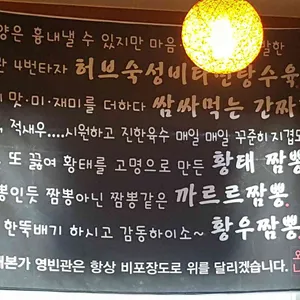 양은 흉내낼 수 있지만 마음
4번타자 허브숙성비타민탕수육
맛·미·재미를 더하다 쌈싸먹는 간짜
, 적새우....시원하고 진한육수 매일 매일 꾸준히 지겹도
또 끓여 황태를 고명으로 만든 황태 짬뽕
뽕인듯 짬뽕아닌 짬뽕같은 까르르짬뽕
한뚝배기 하시고 감동하이소~ 황우짬뽕
대본가 영빈관은 항상 비포장도로 위를 달리겠습니다.